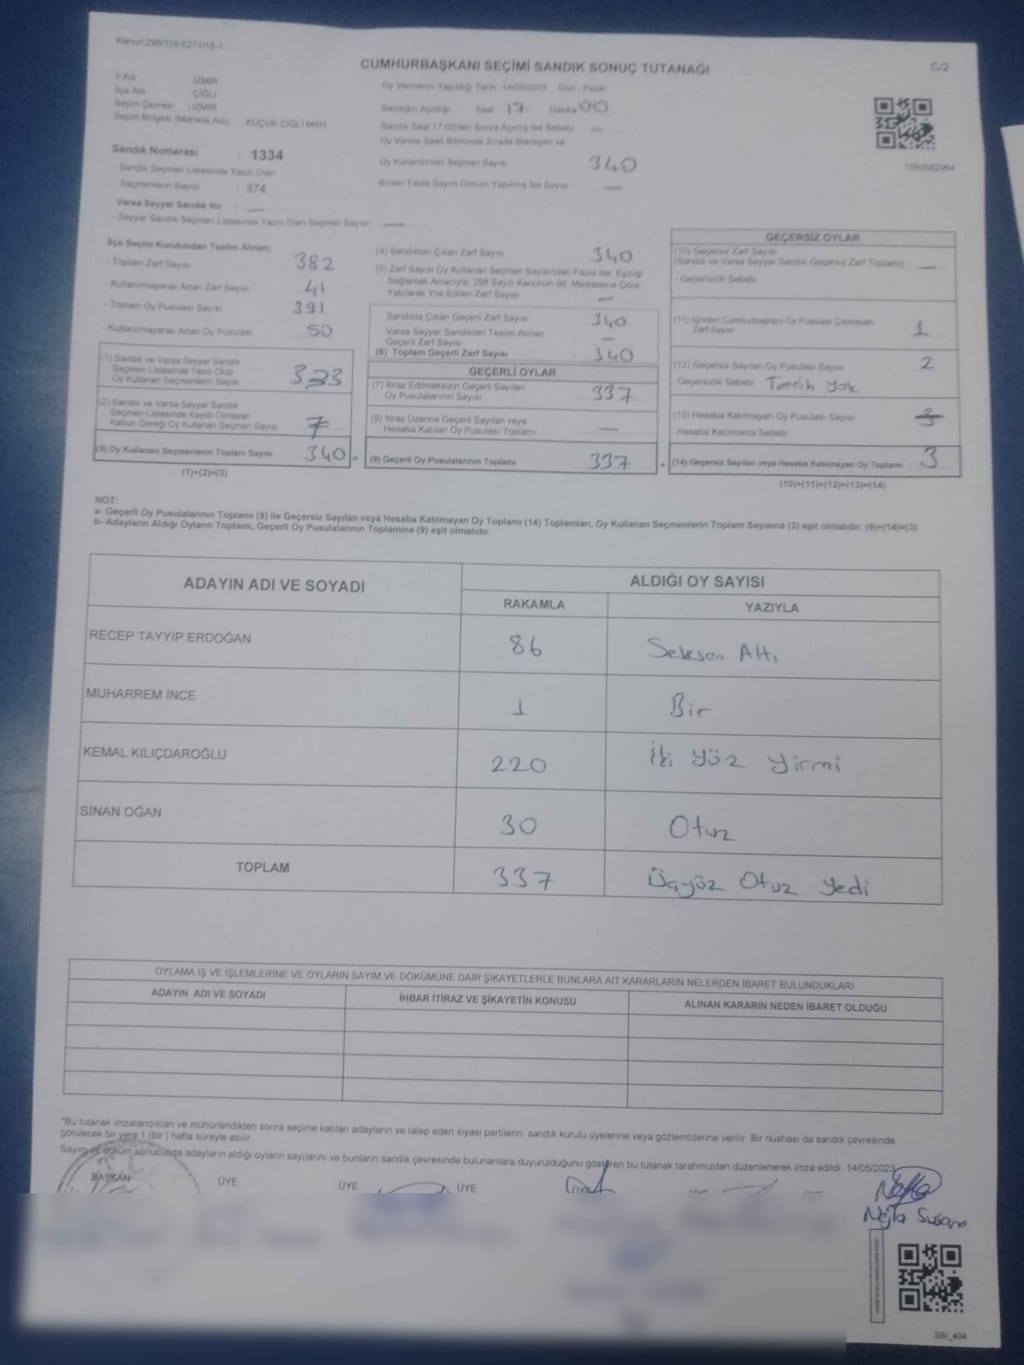 CUMHURBAŞKANI SEÇİMİ SANDIK SONUÇ TUTANAĞI
C/2
İl Adı İZMİR
İlçe Adı ÇİĞLİ
Seçim Çevresi : İZMİR
Seçim Bölgesi (Mahalle Adı) KÜÇÜK ÇİĞLİ MAH.
Oy Vermenin Yapıldığı Tarih 14/05/2023 Gün : Pazar
Sandığın Açılışı Saat 17 Dakika 00
Sandık Saat 17.00'den Sonra Açılmış İse Sebebi —
Oy Verme Saati Bitiminde Sırada Bekleyen ve
Oy Kullandırılan Seçmen Sayısı 340
Birden Fazla Sayım Döküm Yapılmış İse Sayısı —
Sandık Numarası : 1334
- Sandık Seçmen Listesinde Yazılı Olan
Seçmenlerin Sayısı : 374
Varsa Seyyar Sandık No : —
- Seyyar Sandık Seçmen Listesinde Yazılı Olan Seçmen Sayısı —
İlçe Seçim Kurulundan Teslim Alınan;
- Toplam Zarf Sayısı 382
- Kullanılmayarak Artan Zarf Sayısı 41
- Toplam Oy Pusulası Sayısı 391
- Kullanılmayarak Artan Oy Pusulası 50
(1) Sandık ve Varsa Seyyar Sandık
Seçmen Listesinde Yazılı Olup
Oy Kullanan Seçmenlerin Sayısı 333
(2) Sandık ve Varsa Seyyar Sandık
Seçmen Listesinde Kayıtlı Olmayan
Kanun Gereği Oy Kullanan Seçmen Sayısı 7
(3) Oy Kullanan Seçmenlerin Toplam Sayısı 340
(1)+(2)=(3)
(4) Sandıktan Çıkan Zarf Sayısı 340
(5) Zarf Sayısı Oy Kullanan Seçmen Sayısından Fazla İse, Eşitliği
Sağlamak Amacıyla, 298 Sayılı Kanunun 98. Maddesine Göre
Yakılarak Yok Edilen Zarf Sayısı —
Sandıkta Çıkan Geçerli Zarf Sayısı 340
Varsa Seyyar Sandıktan Teslim Alınan
Geçerli Zarf Sayısı —
(6) Toplam Geçerli Zarf Sayısı 340
GEÇERLİ OYLAR
(7) İtiraz Edilmeksizin Geçerli Sayılan
Oy Pusulalarının Sayısı 337
(8) İtiraz Üzerine Geçerli Sayılan veya
Hesaba Katılan Oy Pusulası Toplamı —
(9) Geçerli Oy Pusulalarının Toplamı 337
GEÇERSİZ OYLAR
(10) Geçersiz Zarf Sayısı
(Sandık ve Varsa Seyyar Sandık Geçersiz Zarf Toplamı) —
- Geçersizlik Sebebi
(11) İçinden Cumhurbaşkanı Oy Pusulası Çıkmayan
Zarf Sayısı 1
(12) Geçersiz Sayılan Oy Pusulası Sayısı 2
- Geçersizlik Sebebi Tercih yok
(13) Hesaba Katılmayan Oy Pusulası Sayısı 3
- Hesaba Katılmama Sebebi
(14) Geçersiz Sayılan veya Hesaba Katılmayan Oy Toplamı 3
(10)+(11)+(12)+(13)=(14)
NOT:
a- Geçerli Oy Pusulalarının Toplamı (9) ile Geçersiz Sayılan veya Hesaba Katılmayan Oy Toplamı (14) Toplamları, Oy Kullanan Seçmenlerin Toplam Sayısına (3) eşit olmalıdır. (9)+(14)=(3)
b- Adayların Aldığı Oyların Toplamı, Geçerli Oy Pusulalarının Toplamına (9) eşit olmalıdır.
ADAYIN ADI VE SOYADI ALDIĞI OY SAYISI
RAKAMLA YAZIYLA
RECEP TAYYİP ERDOĞAN 86 Seksen Altı
MUHARREM İNCE 1 Bir
KEMAL KILIÇDAROĞLU 220 İki yüz yirmi
SİNAN OĞAN 30 Otuz
TOPLAM 337 Üçyüz Otuz yedi
OYLAMA İŞ VE İŞLEMLERİNE VE OYLARIN SAYIM VE DÖKÜMÜNE DAİR ŞİKAYETLERLE BUNLARA AİT KARARLARIN NELERDEN İBARET BULUNDUKLARI
ADAYIN ADI VE SOYADI İHBAR İTİRAZ VE ŞİKAYETİN KONUSU ALINAN KARARIN NEDEN İBARET OLDUĞU
"Bu tutanak imzalandıktan ve mühürlendikten sonra seçime katılan adayların ve talep eden siyasi partilerin sandık kurulu üyelerine veya gözlemcilerine verilir. Bir nüshası da sandık çevresinde
görülecek bir yere 1 (bir) hafta süreyle asılır.
Sayım ve döküm sonucunda adayların aldığı oyların sayılarını ve bunların sandık çevresinde bulunanlara duyurulduğunu gösteren bu tutanak tarafımızdan düzenlenerek imza edildi. 14/05/2023
BAŞKAN ÜYE ÜYE ÜYE
SSI_404